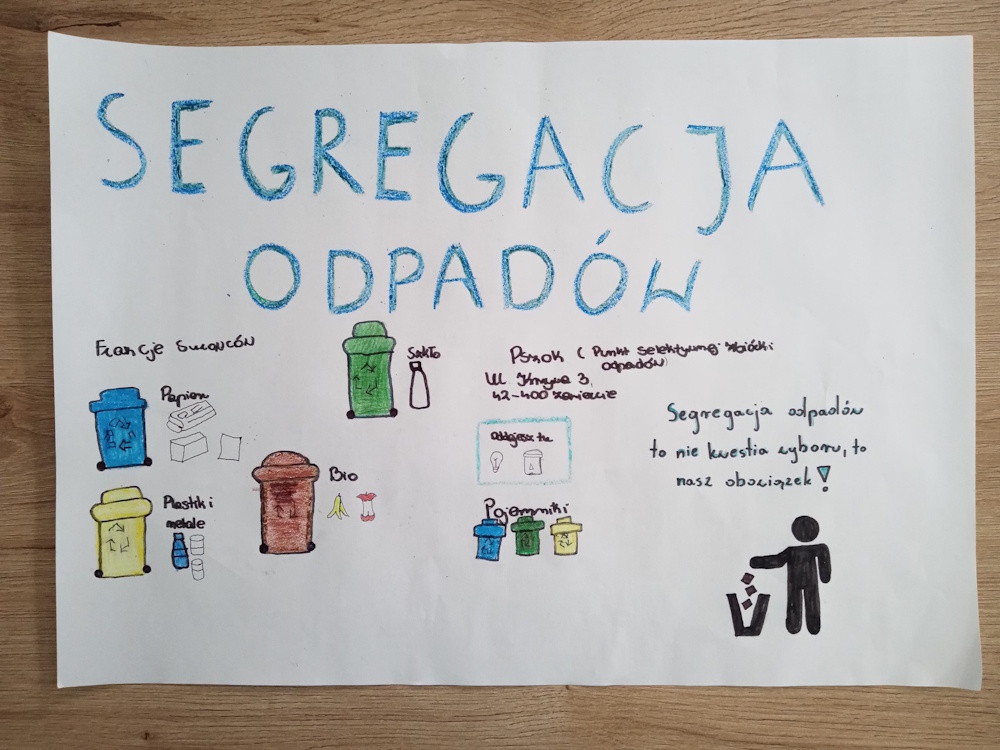 SEGREGACJA
ODPADÓW
Frakcje surowców
Papier
Plastik i
metale
Szkło
Bio
Pszok ( Punkt selektywnej zbiórki
odpadów)
Ul. 3,
42-400 Zawiercie
Oddajesz tu
Pojemniki
Segregacja odpadów
to nie kwestia wyboru, to
nasz obowiązek!